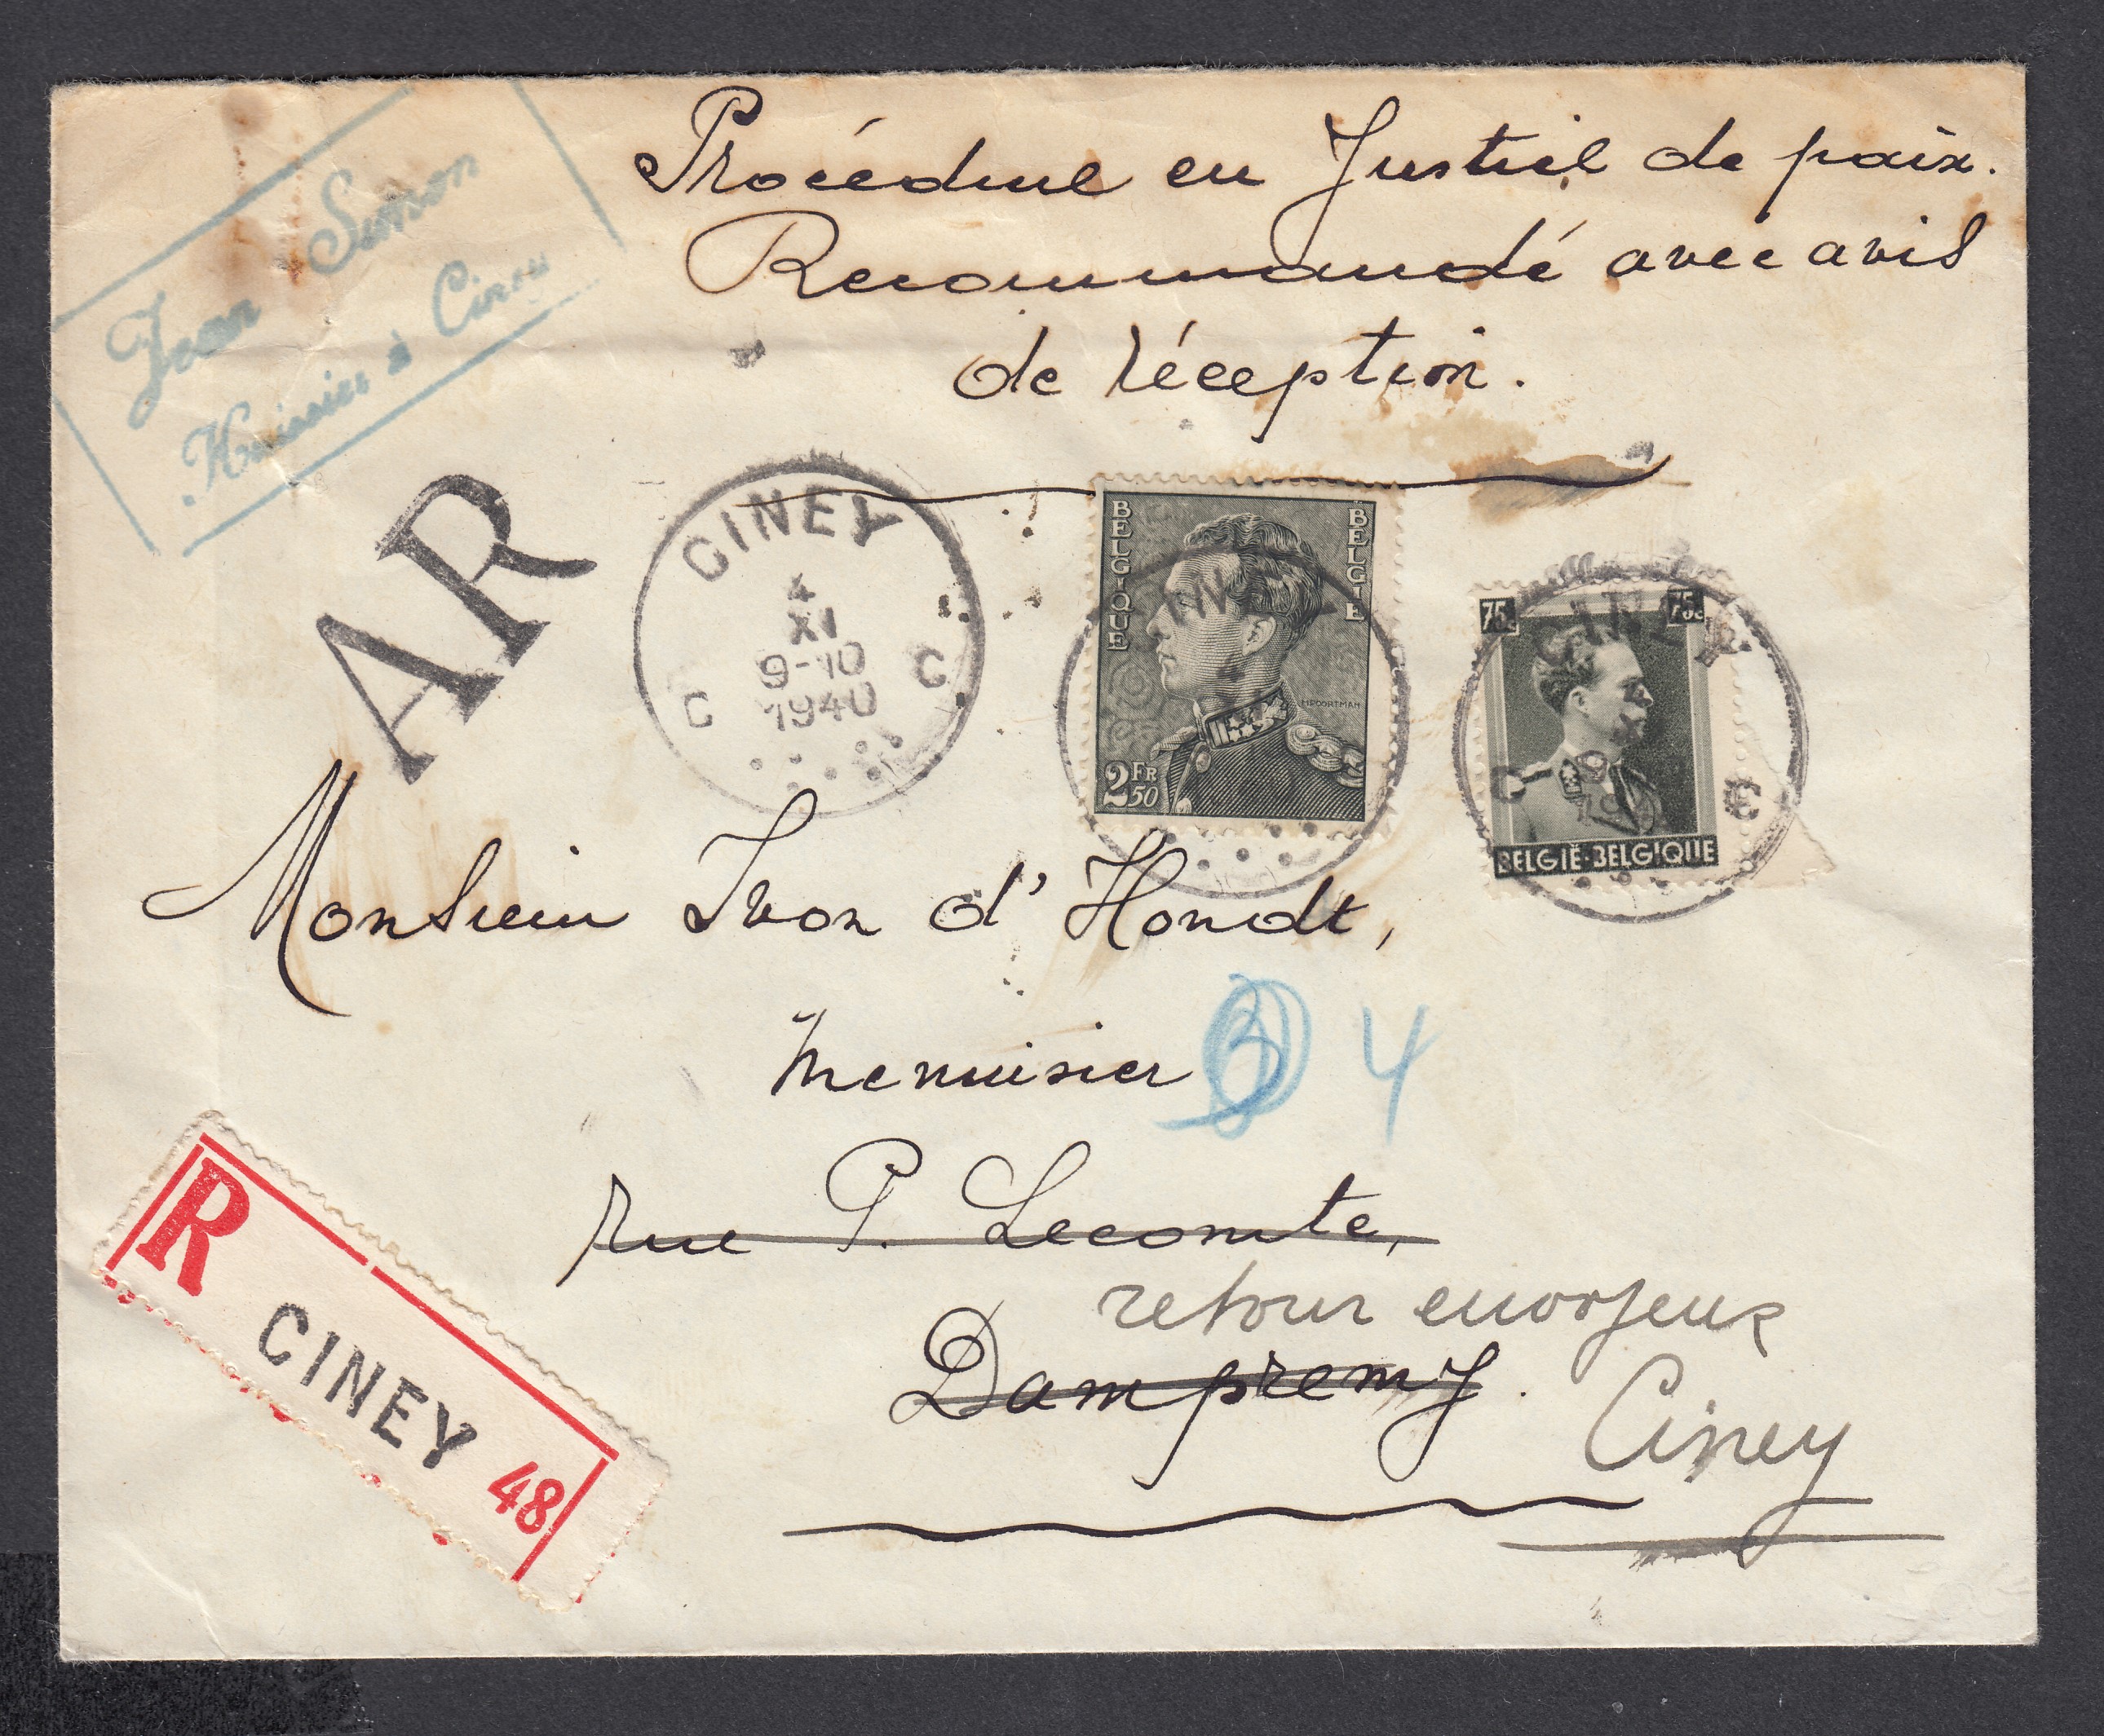 Procédure en Justice de paix.
Recommandé avec avis
de réception.
Jean Simon
Huissier à Ciney
AR
CINEY
4
XI
9-10
1940
C C
BELGIQUE
BELGIE
CINEY
M.POORTMAN
2 FR 50
75c
75c
CINEY
C C
BELGIË-BELGIQUE
Monsieur Ivon d'Hondt,
Menuisier
4
rue P. Lecomte,
retour envoyeur
Dampremy.
Ciney
R
CINEY
48